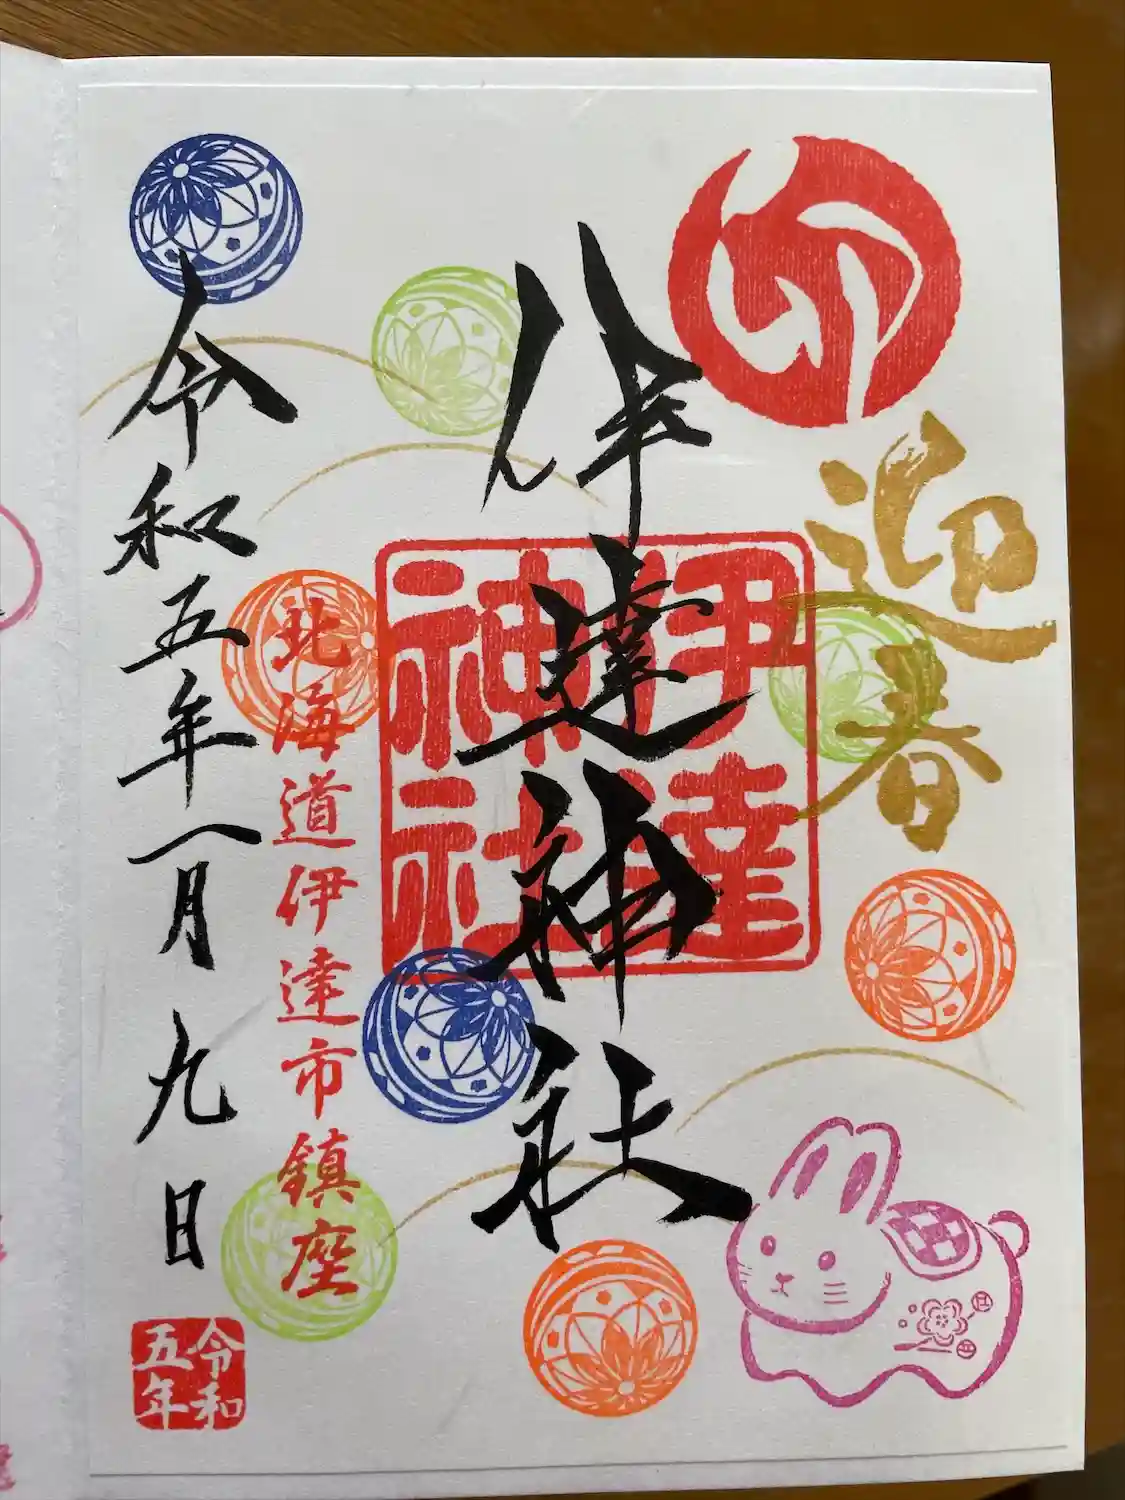 卯
迎春
伊達神社
伊達
神社
北海道伊達市鎮座
令和五年一月九日
令和
五年